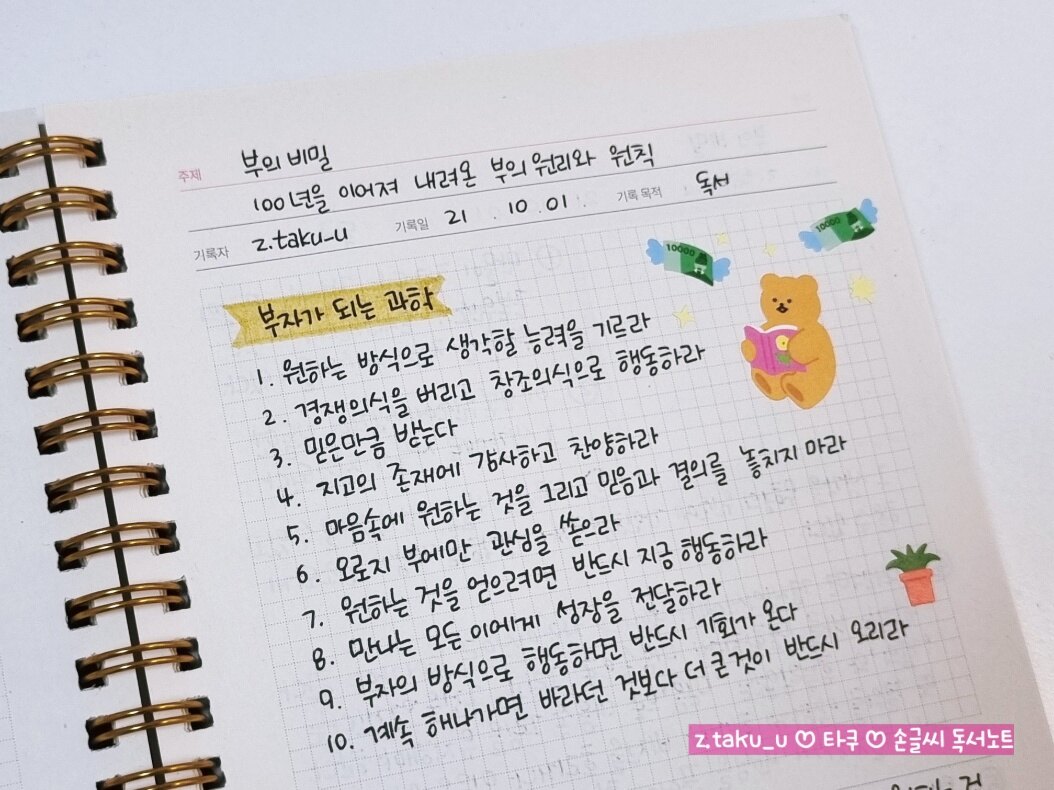 주제 부의 비밀
100년을 이어져 내려온 부의 원리와 원칙
기록자 z.taku_u 기록일 21 . 10 . 01 . 기록 목적 독서
10000
10000
부자가 되는 과학
1. 원하는 방식으로 생각할 능력을 기르라
2. 경쟁의식을 버리고 창조의식으로 행동하라
3. 믿은만큼 받는다
4. 지고의 존재에 감사하고 찬양하라
5. 마음속에 원하는 것을 그리고 믿음과 결의를 놓치지 마라
6. 오로지 부에만 관심을 쏟으라
7. 원하는 것을 얻으려면 반드시 지금 행동하라
8. 만나는 모든 이에게 성장을 전달하라
9. 부자의 방식으로 행동하면 반드시 기회가 온다
10. 계속 해나가면 바라던 것보다 더 큰 것이 반드시 오리라
z.taku_u ♡ 타쿠 ♡ 손글씨 독서노트